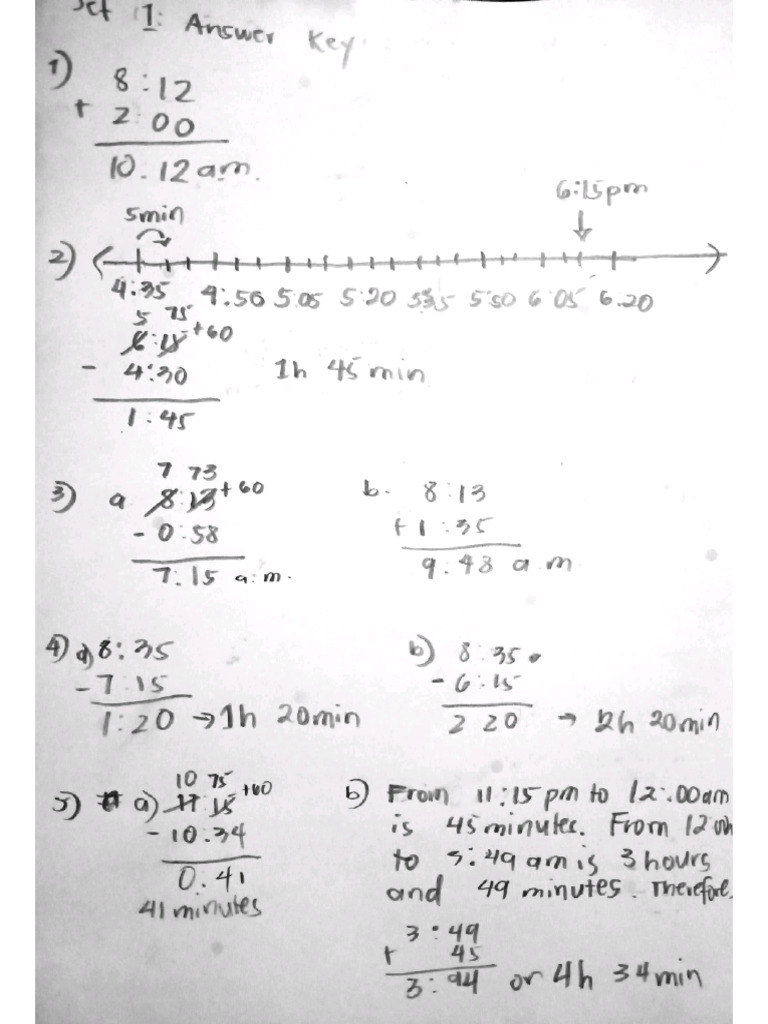 Set 1: Answer Key
1) 8:12
+ 2:00
10:12 am.
6:15pm
5min
2)
4:35 4:50 5:05 5:20 5:35 5:50 6:05 6:20
5 75
6:15 +60
- 4:30 1h 45 min
1:45
7 73
3) a 8:13 +60 b. 8:13
- 0:58 + 1:35
7:15 a.m. 9:48 a.m
4) a) 8:35 b) 8:35
- 7:15 - 6:15
1:20 → 1h 20min 2 20 → 2h 20min
10 75
5) a) 11:15 +60 b) From 11:15 pm to 12:00am
- 10:34 is 45 minutes. From 12
0:41 to 3:49 am is 3 hours
41 minutes and 49 minutes. Therefore,
3:49
+ 45
3:94 or 4h 34 min